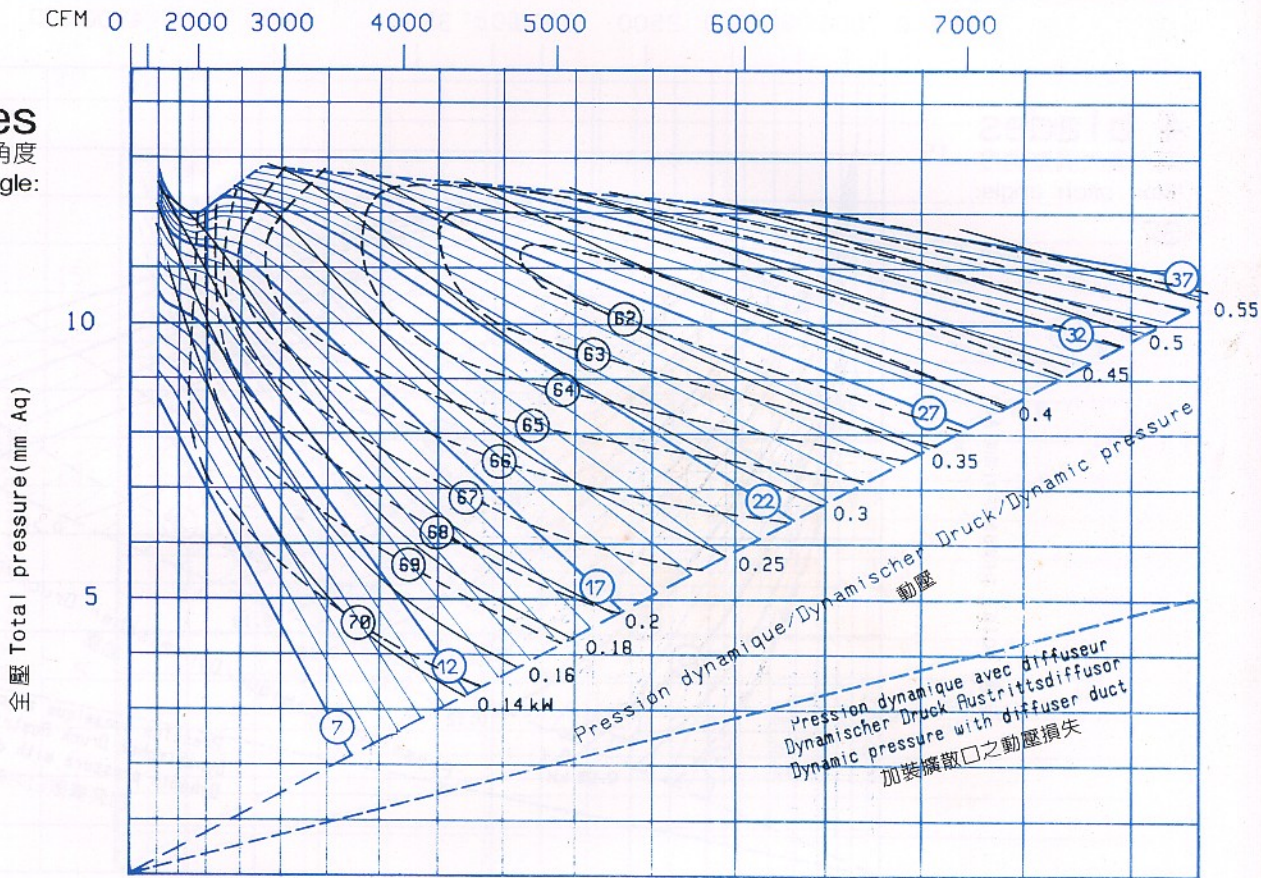 CFM 0 2000 3000 4000 5000 6000 7000
es
角度
gle:
10
5
全壓 Total pressure(mm Aq)
37
0.55
32
0.5
0.45
62
63
64
65
66
67
68
69
70
27
0.4
0.35
22
0.3
0.25
17
0.2
0.18
12
0.16
0.14 kW
7
Pression dynamique/Dynamischer Druck/Dynamic pressure
動壓
Pression dynamique avec diffuseur
Dynamischer Druck Austrittsdiffusor
Dynamic pressure with diffuser duct
加裝擴散口之動壓損失